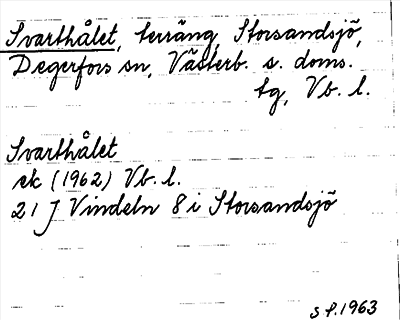 Svarthålet, terräng, Storsandsjö,
Degerfors sn, Västerb. s. doms.
tg, Vb. l.
Svarthålet
ek (1962) Vb. l.
21 J Vindeln 8 i Storsandsjö
S f. 1963